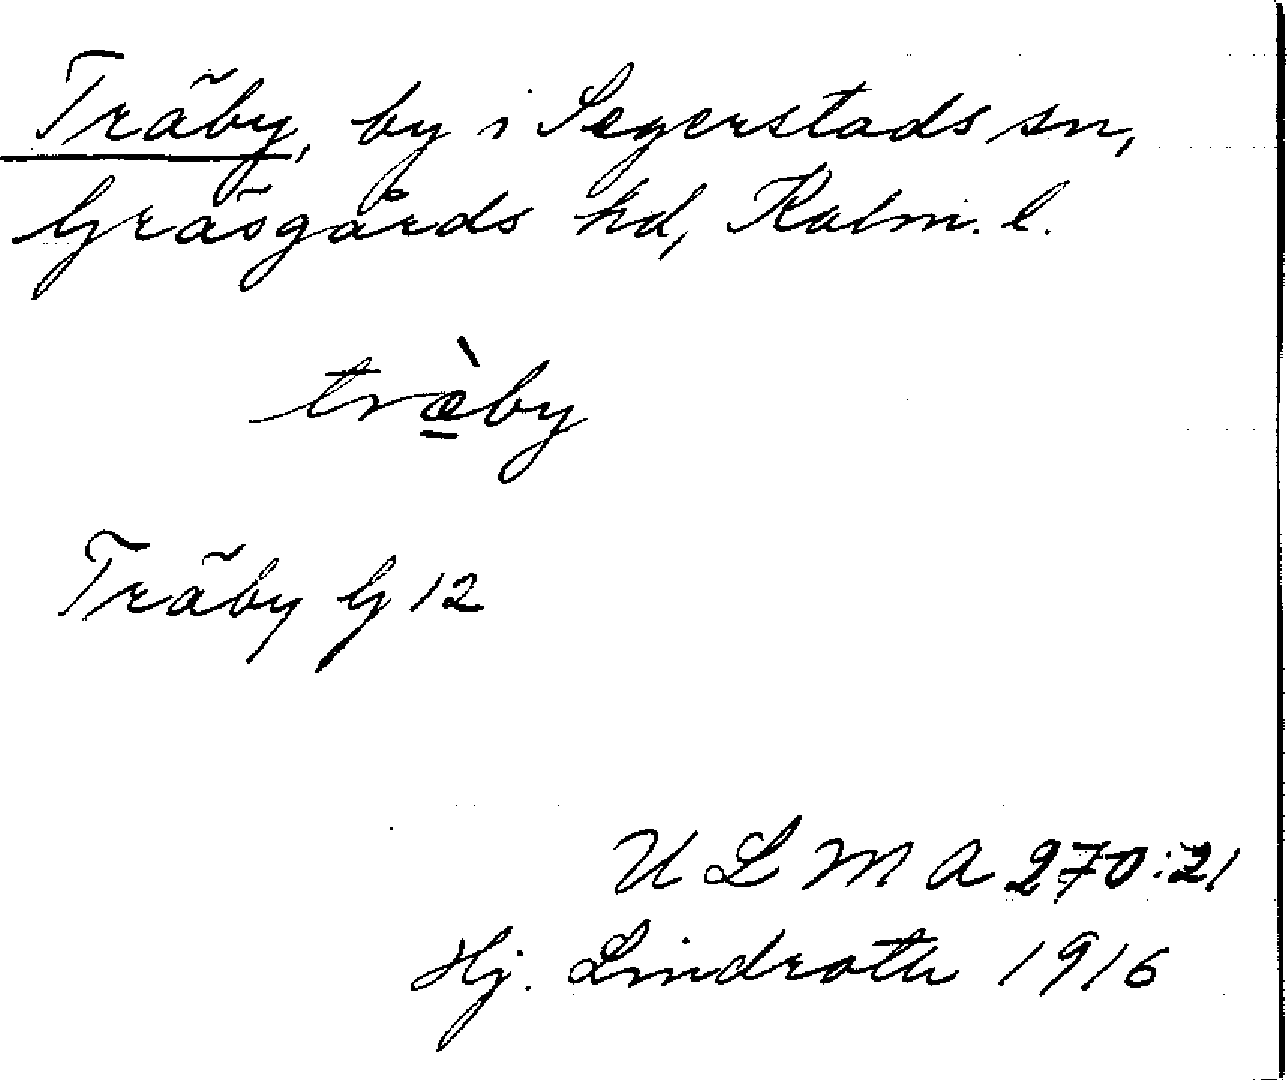 Träby, by i Segerstads sn,
Gräsgårds hd, Kalm. l.
træ̠̀by
Träby G 12
ULMA 270:21
Hj. Lindroth 1916